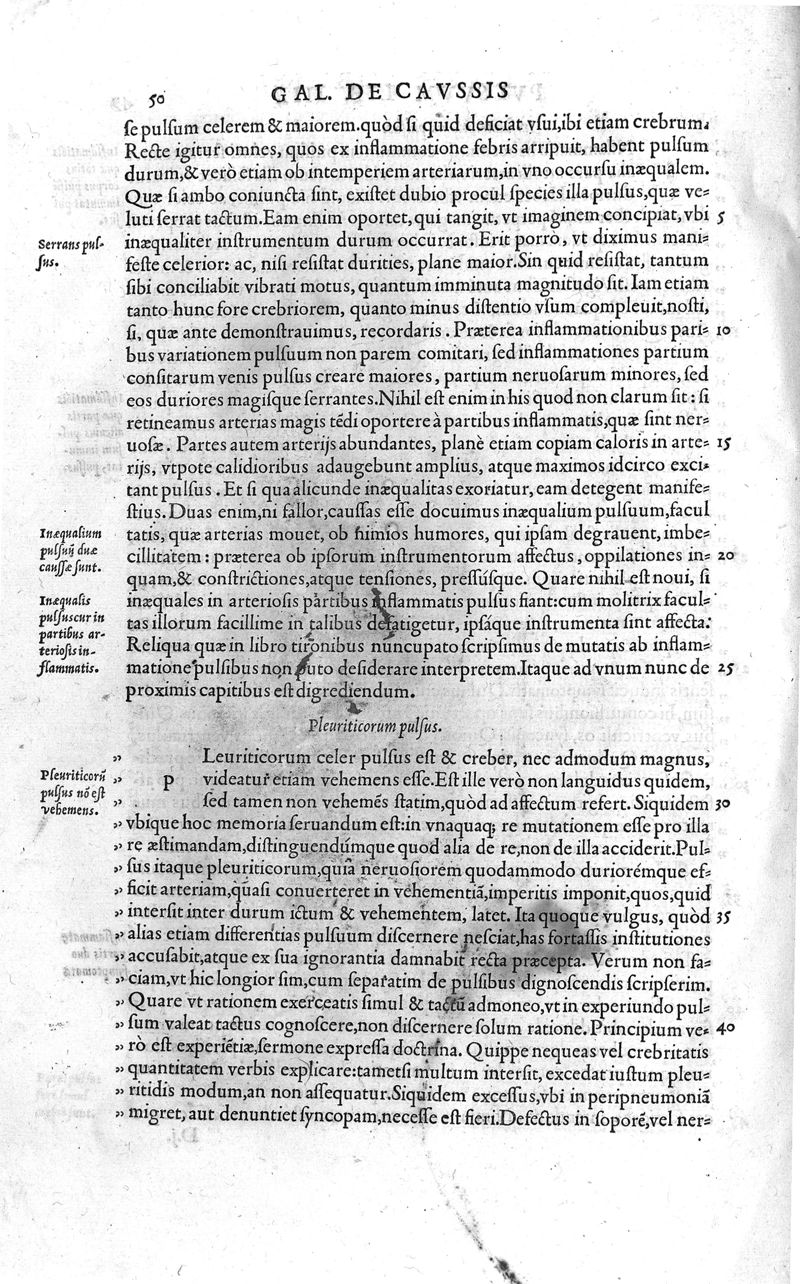 50
GAL. DE CAVSSIS
ſe pulſum celerem & maiorem.quòd ſi quid deficiat vſui,ibi etiam crebrum.
Recte igitur omnes, quos ex inflammatione febris arripuit, habent pulſum
durum,& verò etiam ob intemperiem arteriarum,in vno occurſu inæqualem.
Quæ ſi ambo coniuncta ſint, exiſtet dubio procul ſpecies illa pulſus,quæ ve-
luti ſerrat tactum.Eam enim oportet,qui tangit, vt imaginem concipiat,vbi 5
Serrans pul-
ſus.
inæqualiter inſtrumentum durum occurrat. Erit porrò, vt diximus mani-
feſte celerior: ac, niſi reſiſtat durities, plane maior.Sin quid reſiſtat, tantum
ſibi conciliabit vibrati motus, quantum imminuta magnitudo ſit. Iam etiam
tanto hunc fore crebriorem, quanto minus diſtentio vſum compleuit,noſti,
ſi, quæ ante demonſtrauimus, recordaris. Præterea inflammationibus pari- 10
bus variationem pulſuum non parem comitari, ſed inflammationes partium
conſitarum venis pulſus creare maiores, partium neruoſarum minores, ſed
eos duriores magiſque ſerrantes.Nihil eſt enim in his quod non clarum ſit: ſi
retineamus arterias magis tẽdi oportere à partibus inflammatis,quæ ſint ner-
uoſæ. Partes autem arterijs abundantes, planè etiam copiam caloris in arte- 15
rijs, vtpote calidioribus adaugebunt amplius, atque maximos idcirco exci-
tant pulſus. Et ſi qua alicunde inæqualitas exoriatur, eam detegent manife-
ſtius. Duas enim,ni fallor,cauſſas eſſe docuimus inæqualium pulſuum,facul
Inæqualium
pulſuũ duæ
cauſſæ ſunt.
tatis, quæ arterias mouet, ob nimios humores, qui ipſam degrauent, imbe-
cillitatem: præterea ob ipſorum inſtrumentorum affectus, oppilationes in- 20
quam,& conſtrictiones,atque tenſiones, preſſúſque. Quare nihil eſt noui, ſi
Inæqualis
pulſus cur in
partibus ar-
terioſis in-
flammatis.
inæquales in arterioſis partibus inflammatis pulſus fiant:cum molitrix facul-
tas illorum facillime in talibus defatigetur, ipſáque inſtrumenta ſint affecta.
Reliqua quæ in libro tironibus nuncupato ſcripſimus de mutatis ab inflam-
matione pulſibus non puto deſiderare interpretem.Itaque ad vnum nunc de 25
proximis capitibus eſt digrediendum.
Pleuriticorum pulſus.
Pleuriticorũ
pulſus nõ eſt
vehemens.
„ p Leuriticorum celer pulſus eſt & creber, nec admodum magnus,
„ videatur etiam vehemens eſſe.Eſt ille verò non languidus quidem,
„ ſed tamen non vehemẽs ſtatim,quòd ad affectum refert. Siquidem 30
„ vbique hoc memoria ſeruandum eſt:in vnaquaq; re mutationem eſſe pro illa
„ re æſtimandam,diſtinguendúmque quod alia de re,non de illa acciderit.Pul-
„ ſus itaque pleuriticorum,quia neruoſiorem quodammodo duriorémque ef-
„ ficit arteriam,quaſi conuerteret in vehementiã,imperitis imponit,quos,quid
„ interſit inter durum ictum & vehementem, latet. Ita quoque vulgus, quòd 35
„ alias etiam differentias pulſuum diſcernere neſciat,has fortaſſis inſtitutiones
„ accuſabit,atque ex ſua ignorantia damnabit recta præcepta. Verum non fa-
„ ciam,vt hic longior ſim,cum ſeparatim de pulſibus dignoſcendis ſcripſerim.
„ Quare vt rationem exerceatis ſimul & tactũ admoneo,vt in experiundo pul-
„ ſum valeat tactus cognoſcere,non diſcernere ſolum ratione. Principium ve- 40
„ rò eſt experiẽtiæ,ſermone expreſſa doctrina. Quippe nequeas vel crebritatis
„ quantitatem verbis explicare:tametſi multum interſit, excedat iuſtum pleu-
„ ritidis modum,an non aſſequatur.Siquidem exceſſus,vbi in peripneumoniã
„ migret, aut denuntiet ſyncopam,neceſſe eſt fieri.Defectus in ſoporẽ,vel ner-